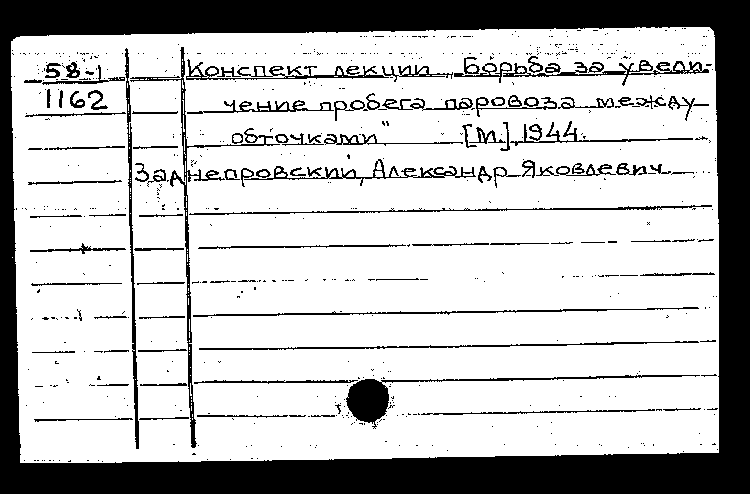 58-1 Конспект лекции „Борьба за увели-
1162 чение пробега паровоза между
обточками" [М.], 1944.
Заднепровский, Александр Яковлевич